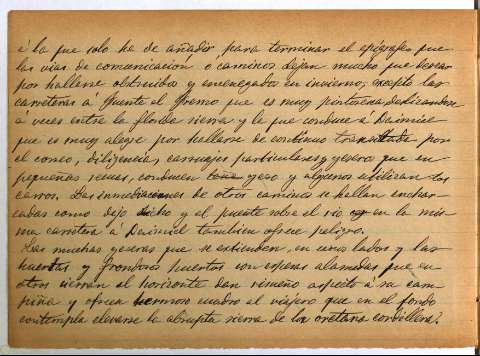 á la que solo he de añadir para terminar el epígrafe, que
las vias de comunicación ó caminos dejan mucho que desear
por hallarse obstruidos y anegados en invierno, excepto las
carreteras á Puente el Fresno que es muy pintoresca deslizandose
á veces entre la florida sierra y la que conduce á Daimiel
que es muy alegre por hallarse de contínuo transitada por
el correo, diligencia, carruajes particulares y yeseros que en
pequeñas recuas, conducen yeso y algunos utilizan los
carros. Las inmediaciones de otros caminos se hallan enchar-
cadas como dejo dicho y el puente sobre el río en la mis-
ma carretera á Daimiel tambien ofrece peligro.
Las muchas yeseras que se extienden, en unos lados y las
huertas y frondosos puertos con espesas alamedas que en
otros cierran el horizonte dan risueño aspecto á su cam-
piña y ofrece hermoso cuadro al viajero que en el fondo
contempla elevarse la abrupta sierra de la oretana cordillera.